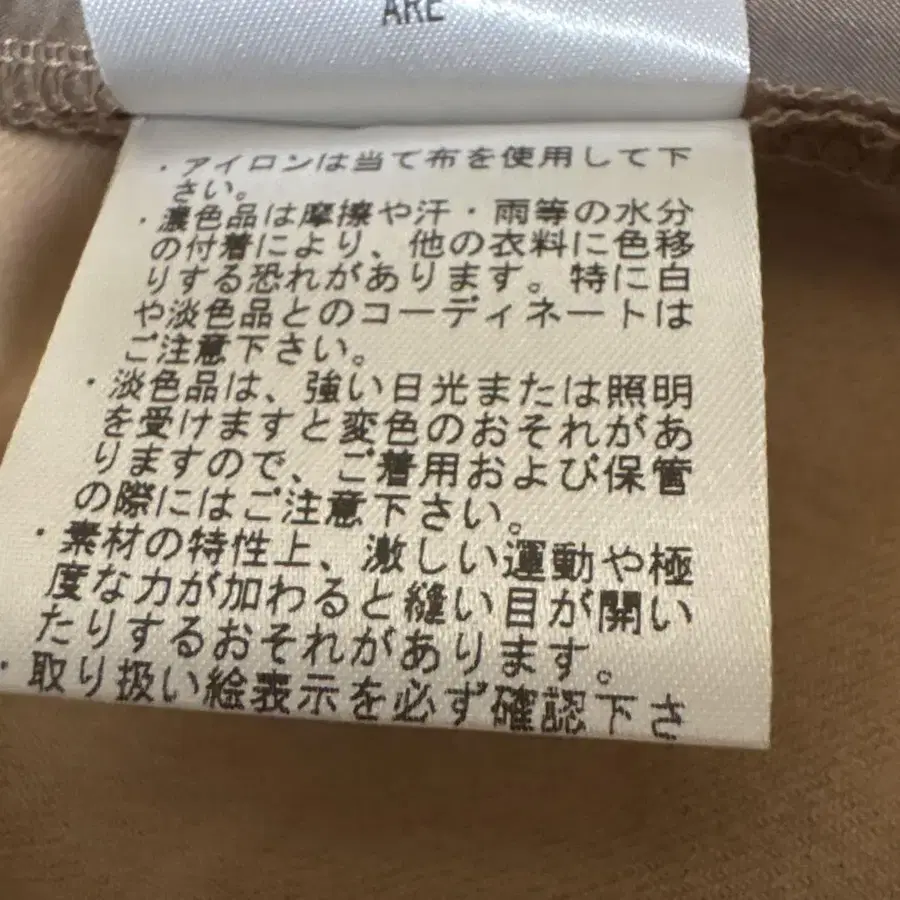 ARE
・アイロンは当て布を使用して下
さい。
・濃色品は摩擦や汗・雨等の水分
の付着により、他の衣料に色移
りする恐れがあります。特に白
や淡色品とのコーディネートは
ご注意下さい。
・淡色品は、強い日光または照明
を受けますと変色のおそれがあ
りますので、ご着用および保管
の際にはご注意下さい。
・素材の特性上、激しい運動や極
度な力が加わると縫い目が開い
たりするおそれがあります。
・取り扱い絵表示を必ず確認下さ